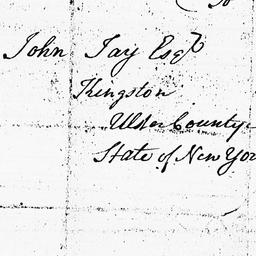 To
John Jay Esqr
Kingston
Ulster County
State of New Yor